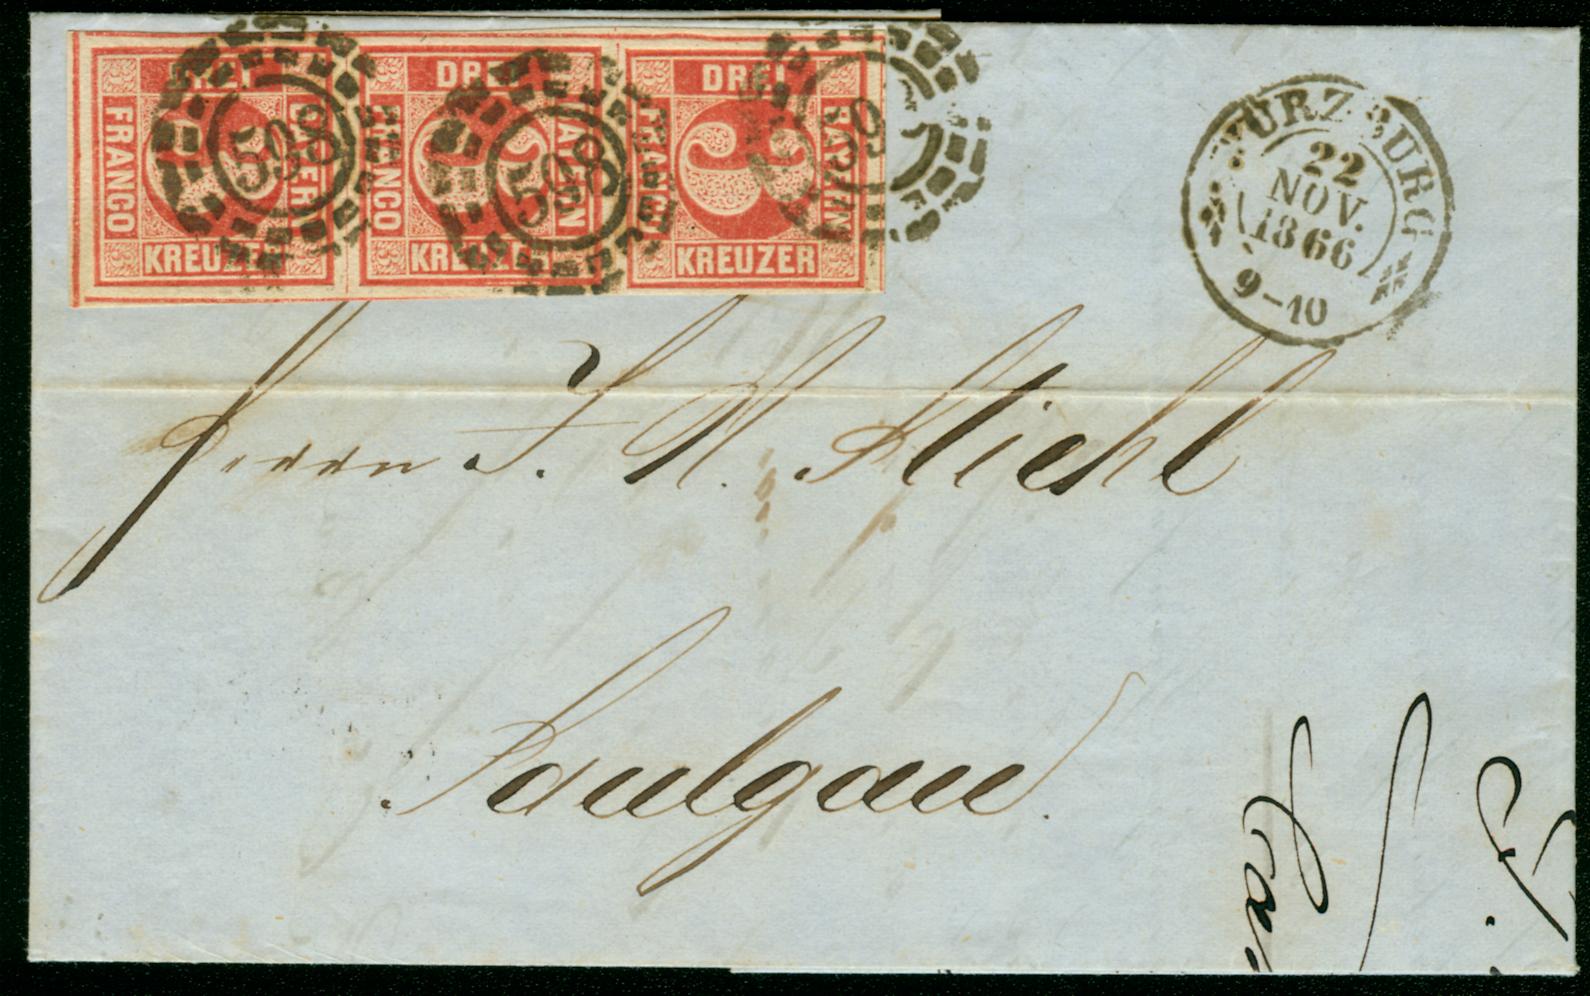 DREI DREI DREI
FRANCO BAYERN FRANCO BAYERN FRANCO BAYERN
3 3 3
KREUZER KREUZER KREUZER
598 598 598
WÜRZBURG
22
NOV.
1866
9-10
Herrn J. N. Stiehl
Saulgau.